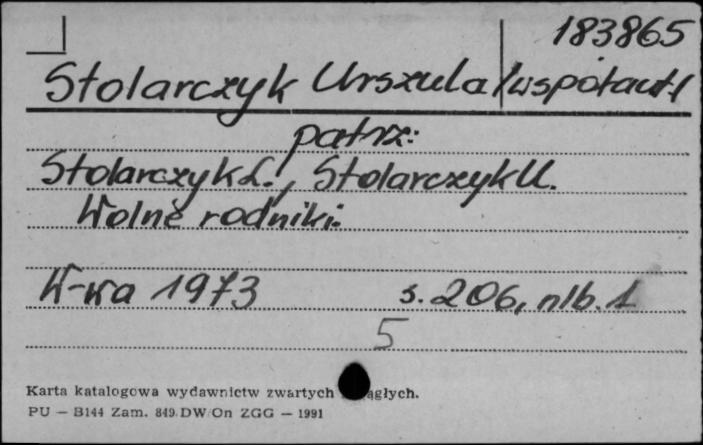 183865
Stolarczyk Urszula /współaut./
patrz:
Stolarczyk L., Stolarczyk U.
Wolne rodniki.
W-wa 1973 s. 206, nlb. 1
5
Karta katalogowa wydawnictw zwartych
PU — B144 Zam. 849. DW/On ZGG — 1991